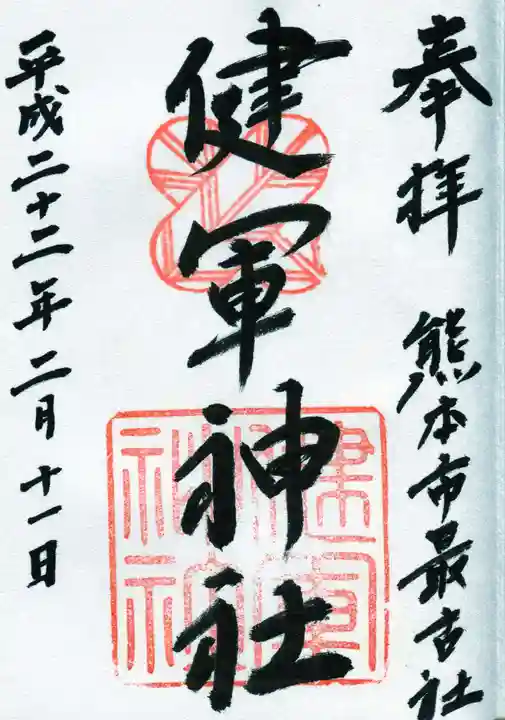 奉拝 熊本市最古社
健軍神社
健軍神社
平成二十二年二月十一日